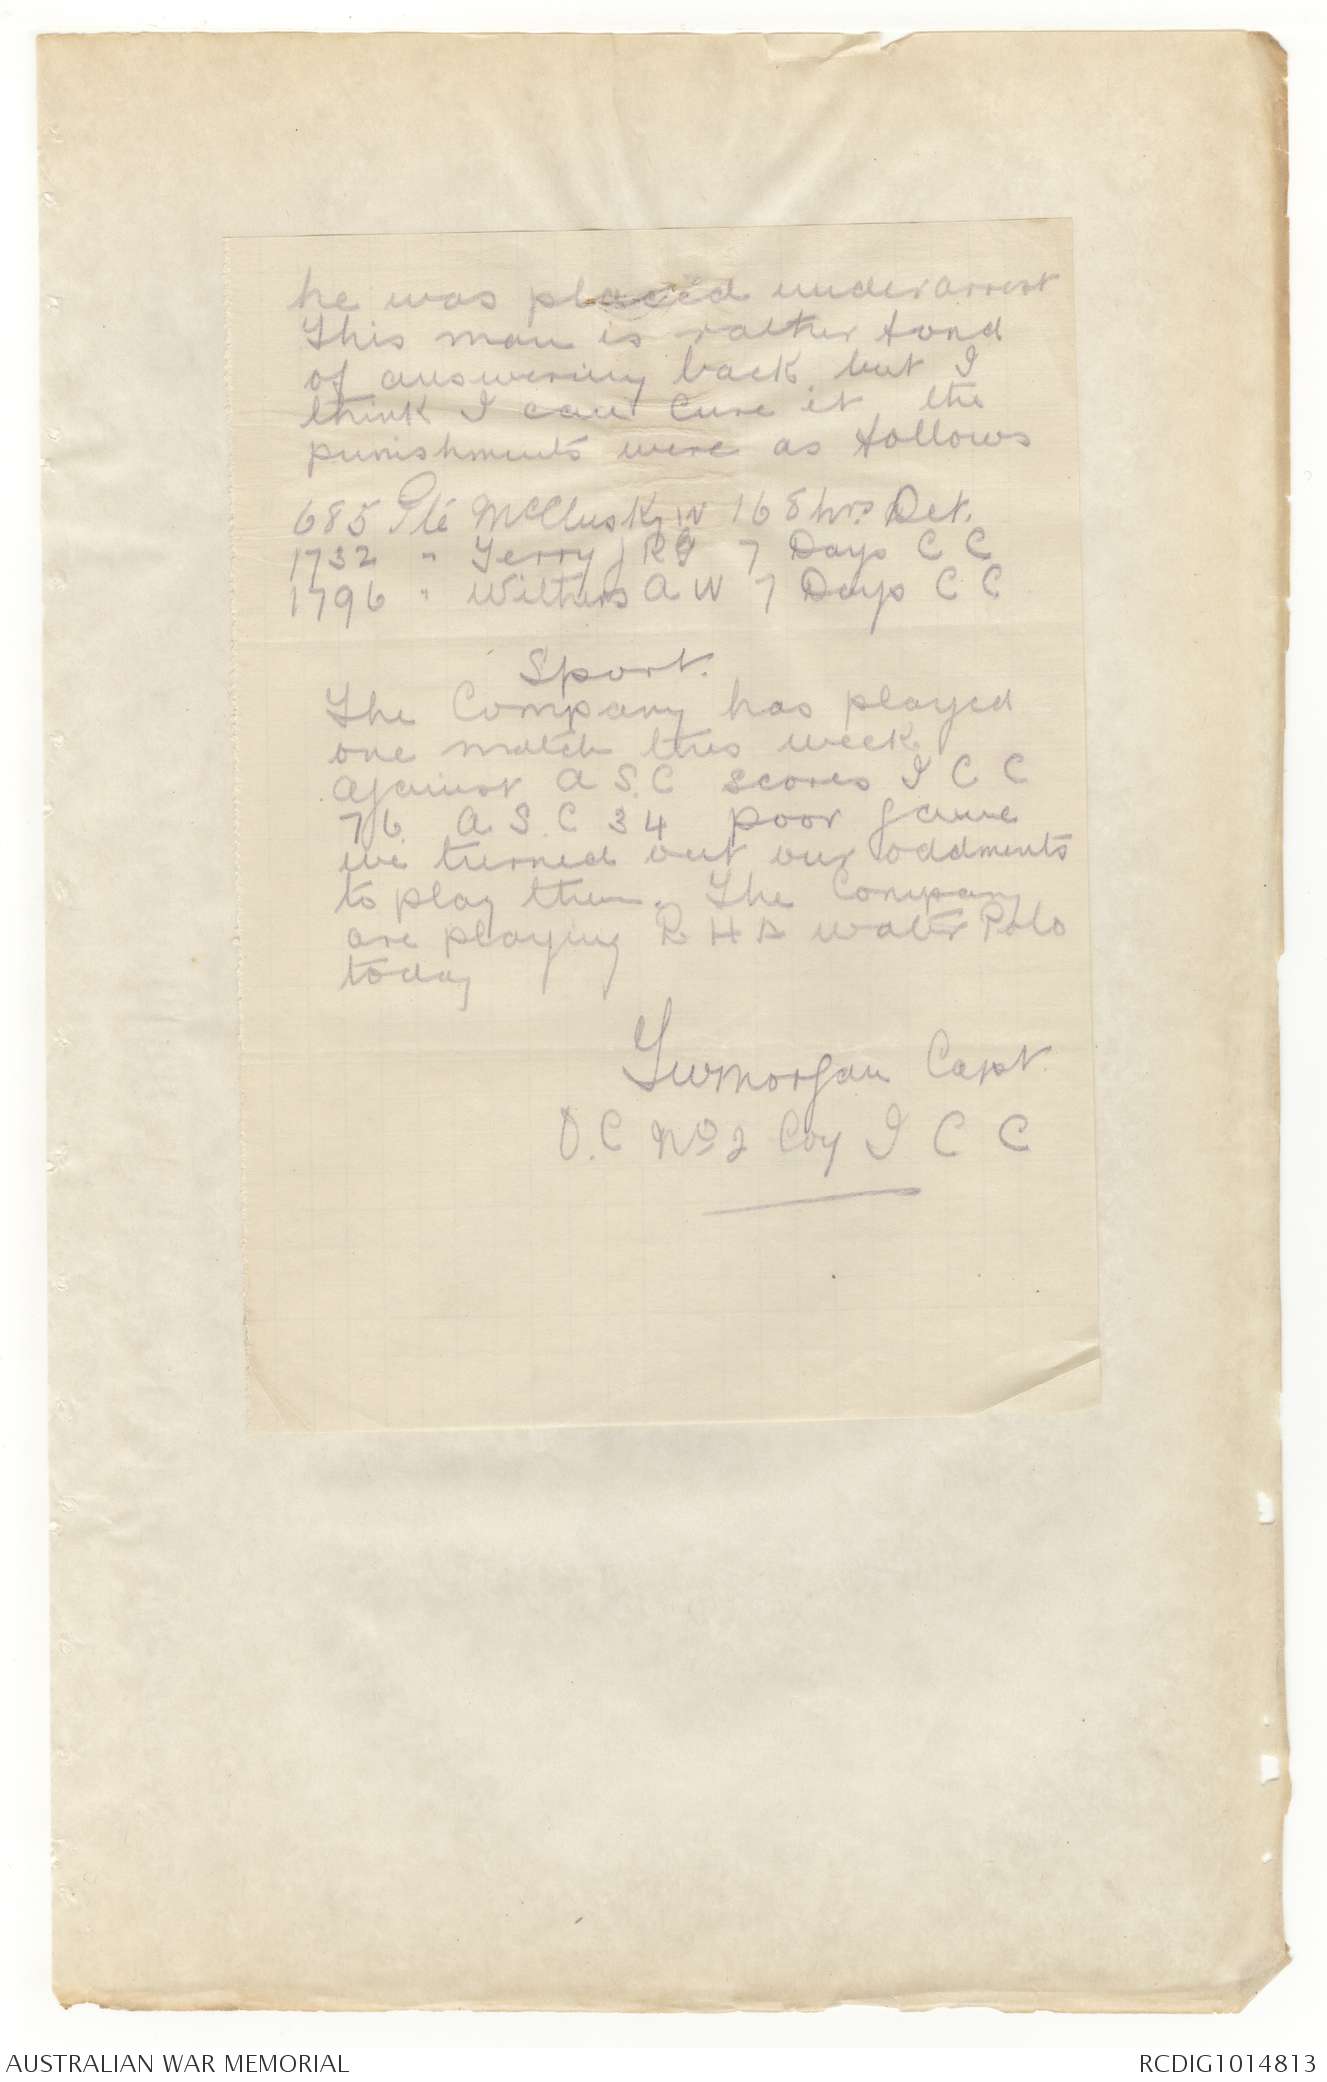 he was placed under arrest
This man is rather fond
of answering back but I
think I can cure it the
punishments were as follows
685 Pte McClusky W 168 hrs Det.
1732 " Terry J R G 7 Days C C
1796 " Withers A W 7 Days C C
Sport.
The Company has played
one match this week
against A S.C scores I C C
76. A S.C 34 poor game
we turned out our oddments
to play them. The Company
are playing R H A water Polo
today
Morgan Capt.
O.C No 2 Coy I C C
AUSTRALIAN WAR MEMORIAL
RCDIG1014813